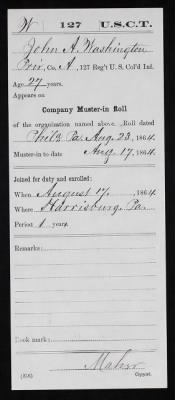 W 127 U.S.C.T.
John A. Washington
Pri., Co. A, 127 Reg't U. S. Col'd Inf.
Age 27 years.
Appears on
Company Muster-in Roll
of the organization named above. Roll dated
Phil'a Pa. Aug. 23, 1864.
Muster-in to date Aug. 17, 1864.
Joined for duty and enrolled:
When August 17, 1864.
Where Harrisburg, Pa.
Period 1 years.
Remarks:
Book mark:
Maher
Copyist.